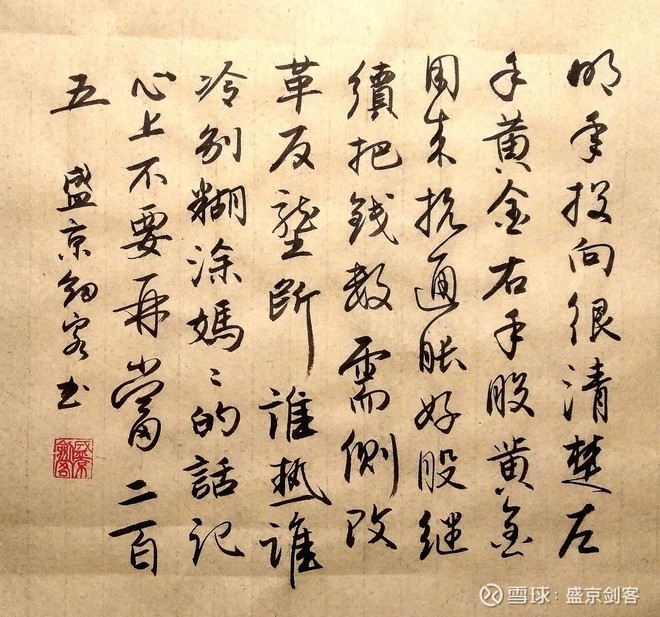 明年投向很清楚左
手黄金右手股黄金
用来抗通胀好股继
續把钱数需侧改
革反壟断誰热誰
冷别糊涂媽〻的話记
心上不要再當二百
五 盛京剑客书
盛京劍客
雪球：盛京剑客